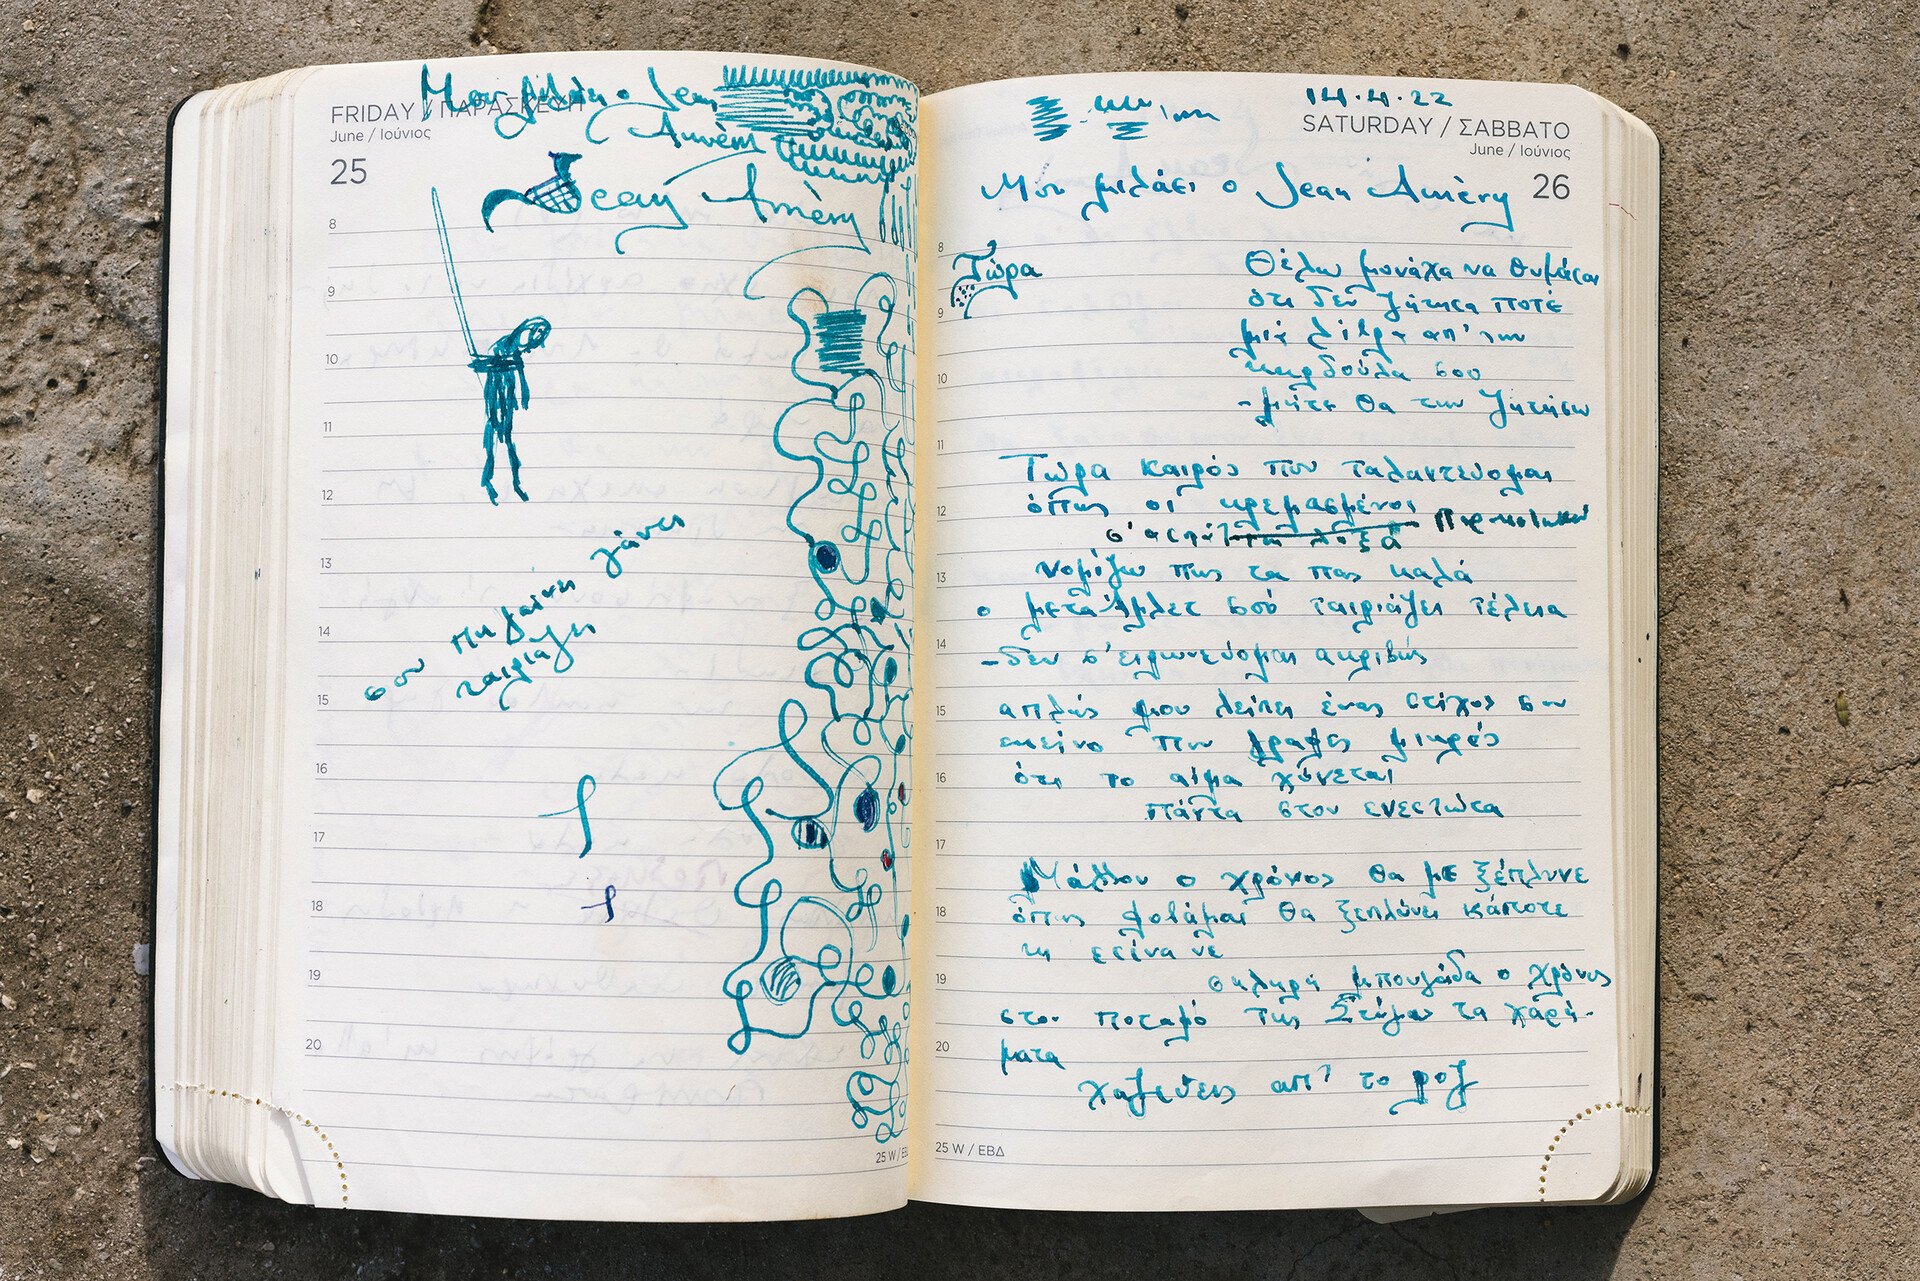 Μου μιλάει ο Jean
Améry
FRIDAY / ΠΑΡΑΣΚΕΥΗ
June / Ιούνιος
25
Jean Améry
8
9
10
11
12
13
14
15
16
17
18
19
20
σου πηγαίνει γάντι
ταιριάζει
25 W / ΕΒΔ
14.4.22
SATURDAY / ΣΑΒΒΑΤΟ
June / Ιούνιος
26
Μου μιλάει ο Jean Améry
8
Τώρα
Θέλω μονάχα να θυμάσαι
9
ότι δεν ζήτησα ποτέ
μιά λίβρα απ' την
10
καρδούλα σου
- μήτε θα την ζητήσω
11
Τώρα καιρός που ταλαντεύομαι
12
όπως οι κρεμασμένοι
λοξά
13
νομίζω πως τα πας καλά
ο μετα-Άμλετ σού ταιριάζει τέλεια
14
- δεν σ' ειρωνεύομαι ακριβώς
15
απλώς μου λείπει ένας στίχος σου
εκείνο που έγραφες μικρός
16
ότι το αίμα χύνεται
πάντα στον ενεστώτα
17
Μάλλον ο χρόνος θα με ξέπλυνε
18
όπως φοβάμαι θα ξεπλύνει κάποτε
κι εσένα νε
19
σκληρή μπουγάδα ο χρόνος
στον ποταμό της Στύγας τα χαρί-
20
ματα
χαζεύεις απ' το ροζ
25 W / ΕΒΔ